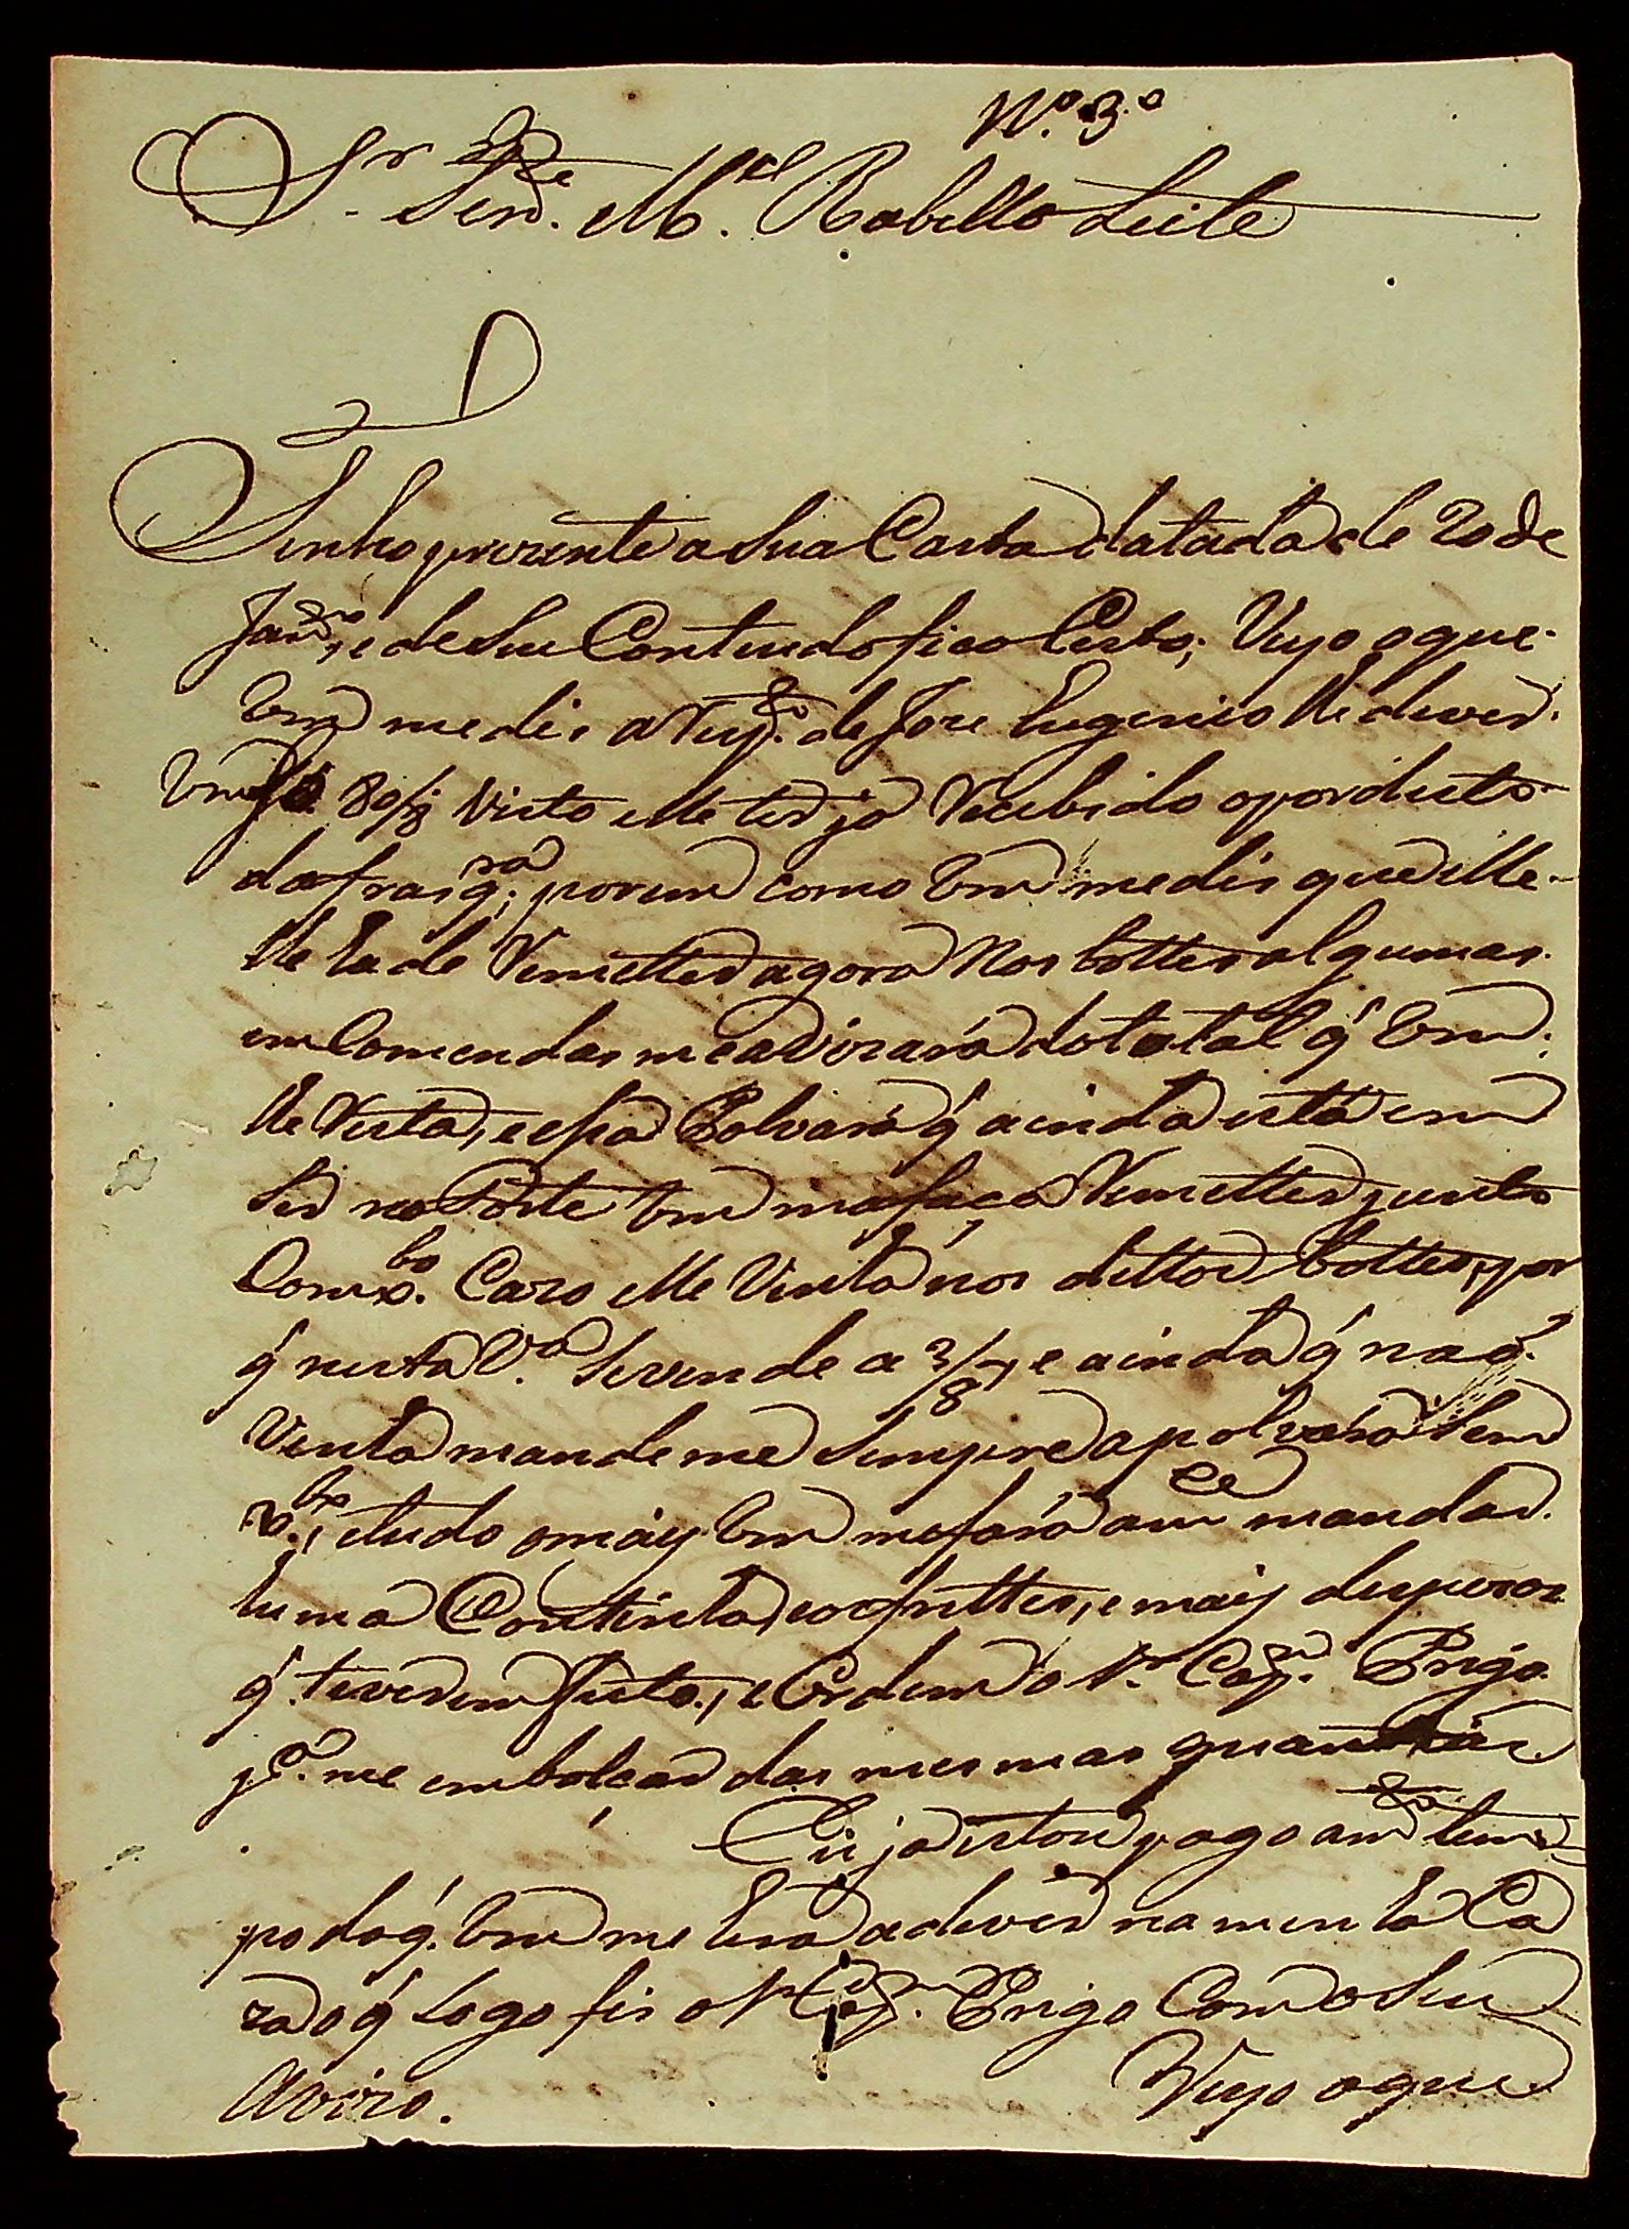 N.º 3.º
Sr. Ten.te M.el Rabello Leite
Tenho prezente a Sua Carta datada de 20 de
Janr.º, e de Seu Contiudo fico Certo; Vejo o que
Vm me dis a Resp.to de Joze Eugenio lhe dever
Vm 80/8 Visto elle ter ja Recebido o porduto
da fras q.ra; porem como Vm me dis que elle
lhe ha de Remetter agora Nos bottes algumas
emComendas me avizará do total q' Vm
lhe Resta, e essa Polvara q' ainda está em
Ser no Forte Vm ma faça Remetter junto
Com Caso elle Venha nos dittos bottes, por
q' nesta V.a Se vende a 3/8, e ainda q' naõ
Venha mande me Sempre a polvara Sem
, e tudo o mais Vm me fará a m.ce mandar
huma Continha, os frettes, e mais despezas
q' tiverem feito, e Ordem ó Sr. Cap.m Prigo
p.a me embolçar das mesmas quantias
Eu ja estou pago a m.to tem
po do q' Vm me hera a dever na minha Ca
za o q' Logo fis o Sr Cap.m Prigo Com o Seu
Avizo. Vejo o que